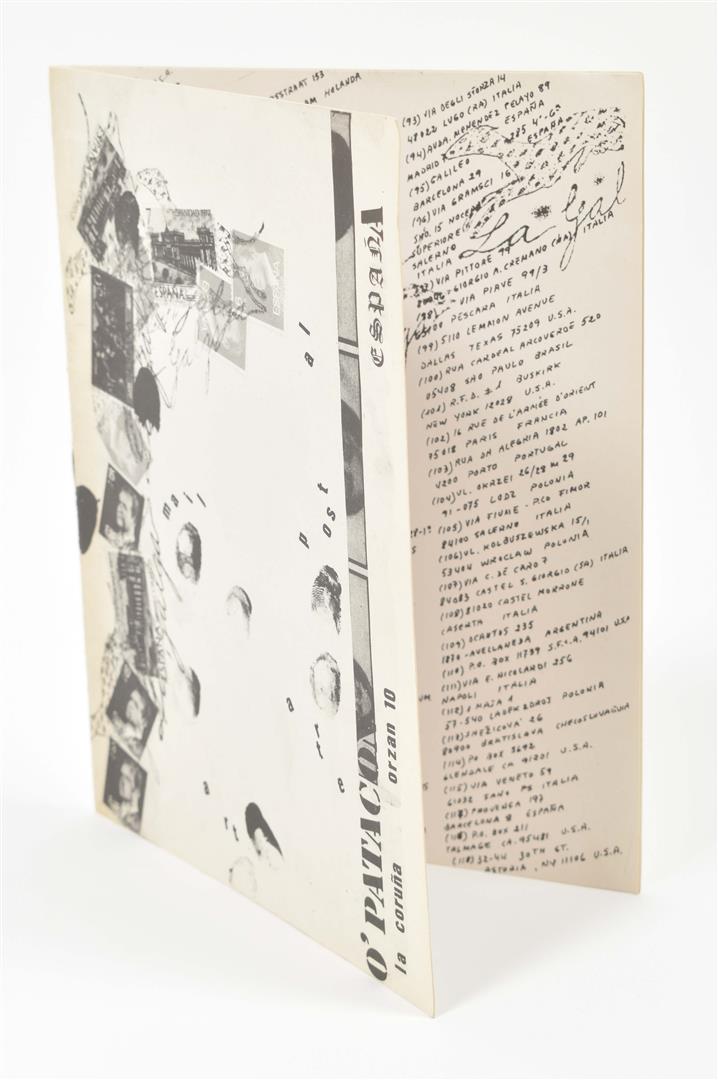 ESPAÑA
ESPAÑA
ESPAÑA
mail
art
arte
postal
O'PATACON
la coruña
orzan 10
ESPAÑA
STRAAT 153
AM HOLANDA
(93) VIA DEGLI SFORZA 14
48022 LUGO (RA) ITALIA
(94) AVDA. MENENDEZ PELAYO 89
MADRID ESPAÑA
(95) GALILEO 285 4º
BARCELONA 29 ESPAÑA
(96) VIA GRAMSCI 16
SUPERIORE
SALERNO
ITALIA
La Gal
VIA PITTORE
GIORGIO A. CREMANO (NA) ITALIA
VIA PIAVE 99/3
PESCARA ITALIA
(99) 5110 LEMMON AVENUE
DALLAS TEXAS 75209 U.S.A.
(100) RUA CARDEAL ARCOVERDE 520
05408 SAO PAULO BRASIL
(101) R.F.D. #1 BUSKIRK
NEW YORK 12028 U.S.A.
(102) 16 RUE DE L'ARMÉE D'ORIENT
75018 PARIS FRANCIA
(103) RUA DA ALEGRIA 1802 AP. 101
4200 PORTO PORTUGAL
(104) UL. OKRZEI 26/28 m 29
91-075 LODZ POLONIA
(105) VIA FIUME - P.CO FIMOR
84100 SALERNO ITALIA
(106) UL. KOLBUSZEWSKA 15/1
53404 WROCLAW POLONIA
(107) VIA C. DE CARO 7
84083 CASTEL S. GIORGIO (SA) ITALIA
(108) 81020 CASTEL MORRONE
CASERTA ITALIA
(109) OCANTOS 235
1870-AVELLANEDA ARGENTINA
(110) P.O. BOX 11739 S.F. CA. 94101 USA
(111) VIA E. NICOLARDI 256
NAPOLI ITALIA
(112) 1 MAJA 1
57-540 LADEK ZDROJ POLONIA
(113) SNEŽICOVÁ 26
80900 BRATISLAVA CHECOSLOVAQUIA
(114) PO BOX 3692
GLENDALE CA 91201 U.S.A.
(115) VIA VENETO 59
61032 FANO PS ITALIA
PROVENÇA 197
BARCELONA 8 ESPAÑA
P.O. BOX 211
TALMAGE CA. 95481 U.S.A.
(118) 32-44 30TH ST.
ASTORIA, NY 11106 U.S.A.